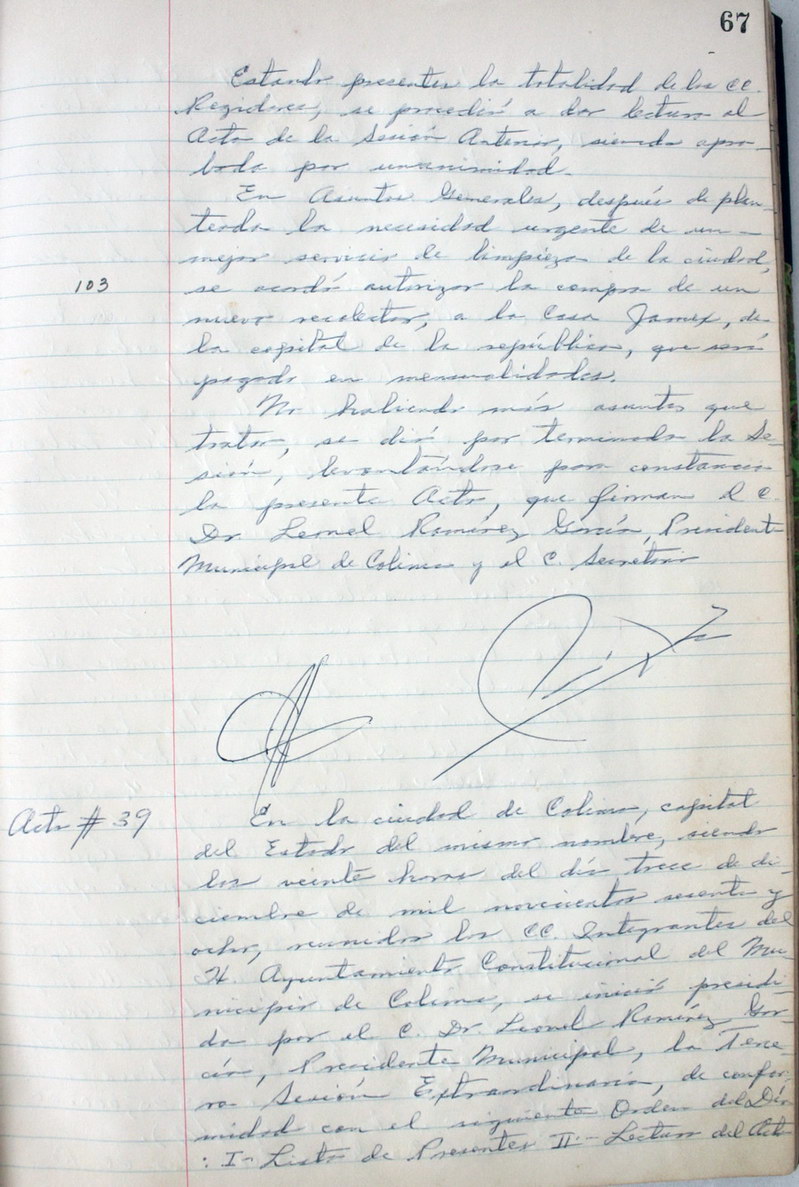 67
Estando presentes la totalidad de los CC.
Regidores, se procedió a dar lectura al
Acta de la Sesión Anterior, siendo apro-
bada por unanimidad.
En Asuntos Generales, después de plan-
teada la necesidad urgente de un
mejor servicio de limpieza de la ciudad,
103 se acordó autorizar la compra de un
nuevo recolector, a la Casa Jamex, de
la capital de la república, que será
pagado en mensualidades.
No habiendo más asuntos que
tratar, se dió por terminada la Se-
sión, levantándose para constancia
la presente Acta, que firman el C.
Dr Leonel Ramírez García, Presidente
Municipal de Colima y el C. Secretario
Acta # 39 En la ciudad de Colima, capital
del Estado del mismo nombre, siendo
las veinte horas del día trece de di-
ciembre de mil novecientos sesenta y
ocho, reunidos los CC Integrantes del
H. Ayuntamiento Constitucional del Mu-
nicipio de Colima, se inició presidi-
da por el C. Dr. Leonel Ramírez Gar-
cía, Presidente Municipal, la Terce-
ra Sesión Extraordinaria, de confor-
midad con el siguiente Orden del Día
: I- Lista de Presentes II.- Lectura del Acta